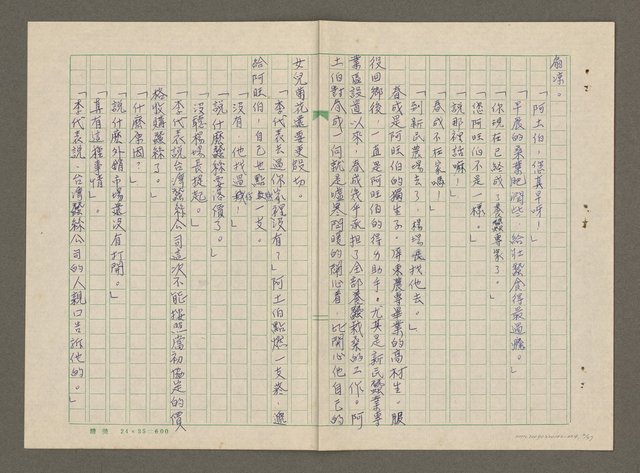 扇涼。
「阿土伯，您真早呀！」
「早晨的桑葉肥閒些，給壯蠶食得最過癮。」
「你現在已經成了養蠶專家了。」
「您阿旺伯不是一樣。」
「說那裡話嘛！」
「春成不在家嗎！」
「到新民農場去了，楊場長找他去。」
春成是阿旺伯的獨生子。屏東農專畢業的高材生。服
役回鄉後，一直是阿旺伯的得力助手。尤其是新民蠶業專
業區設置以來，春成幾乎承担了全部養蠶栽桑的工作。阿
土伯對春成，向就是噓寒問暖的關心着，比關心他自己的
女兒菊花還要更殷切。
「李代表去過你家裡沒有？」阿土伯點燃一支菸，遞
給阿旺伯，自己也點一支。
「沒有，他找過我！」
「說什麼蠶絲要落價了。」
「沒聽楊場長提起。」
「李代表說台灣蠶絲公司這次不能按照當初協定的價
格收購蠶絲了。」
「什麼原因？」
「說什麼外銷市場還沒有打開。」
「真有這種事情」。
「李代表說，台灣蠶絲公司的人親口告訴他的。」
24×25＝600